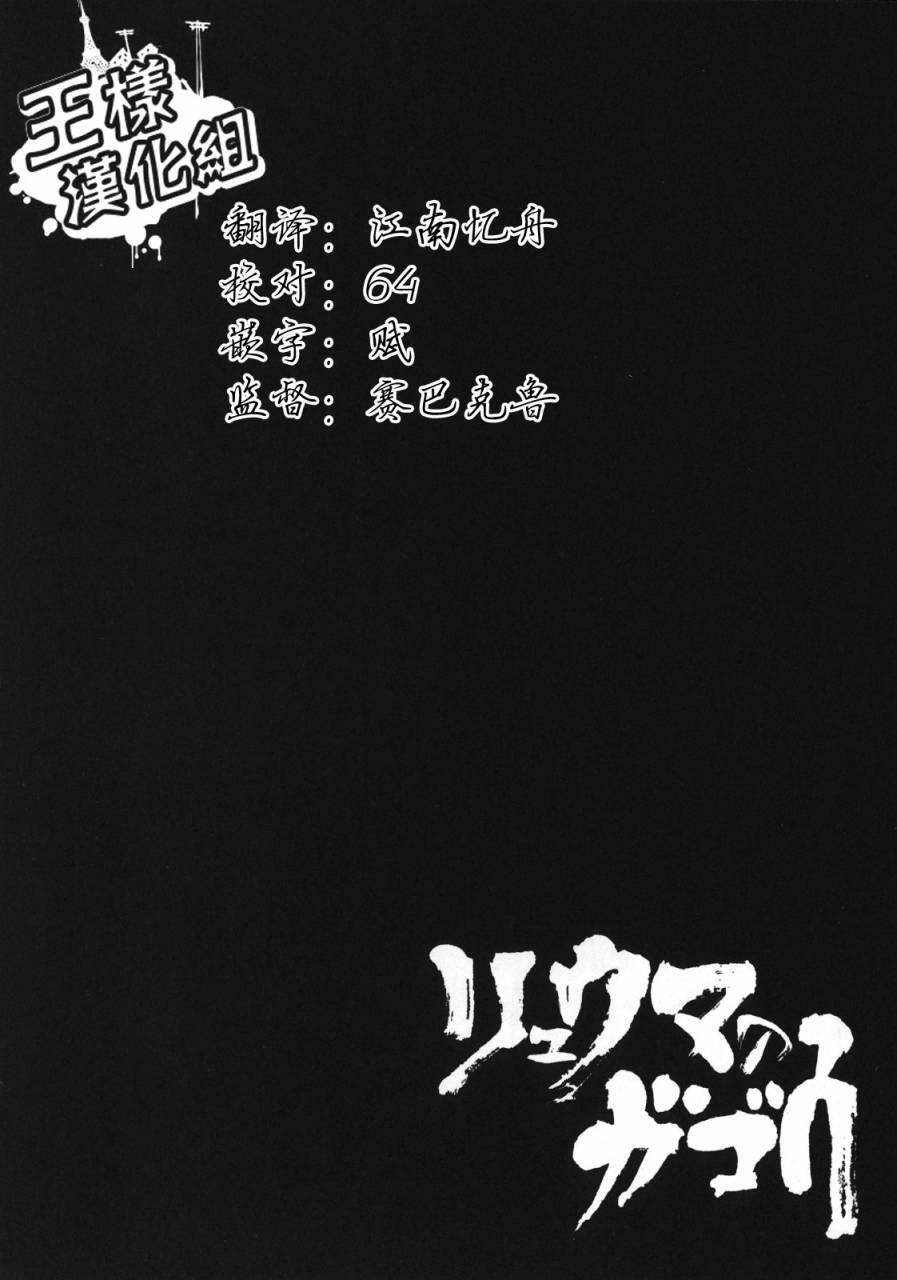 王様
漢化組
翻译： 江南忆舟
校对： 64
嵌字： 赋
监督： 赛巴克鲁
リュウマの
ガゴウ